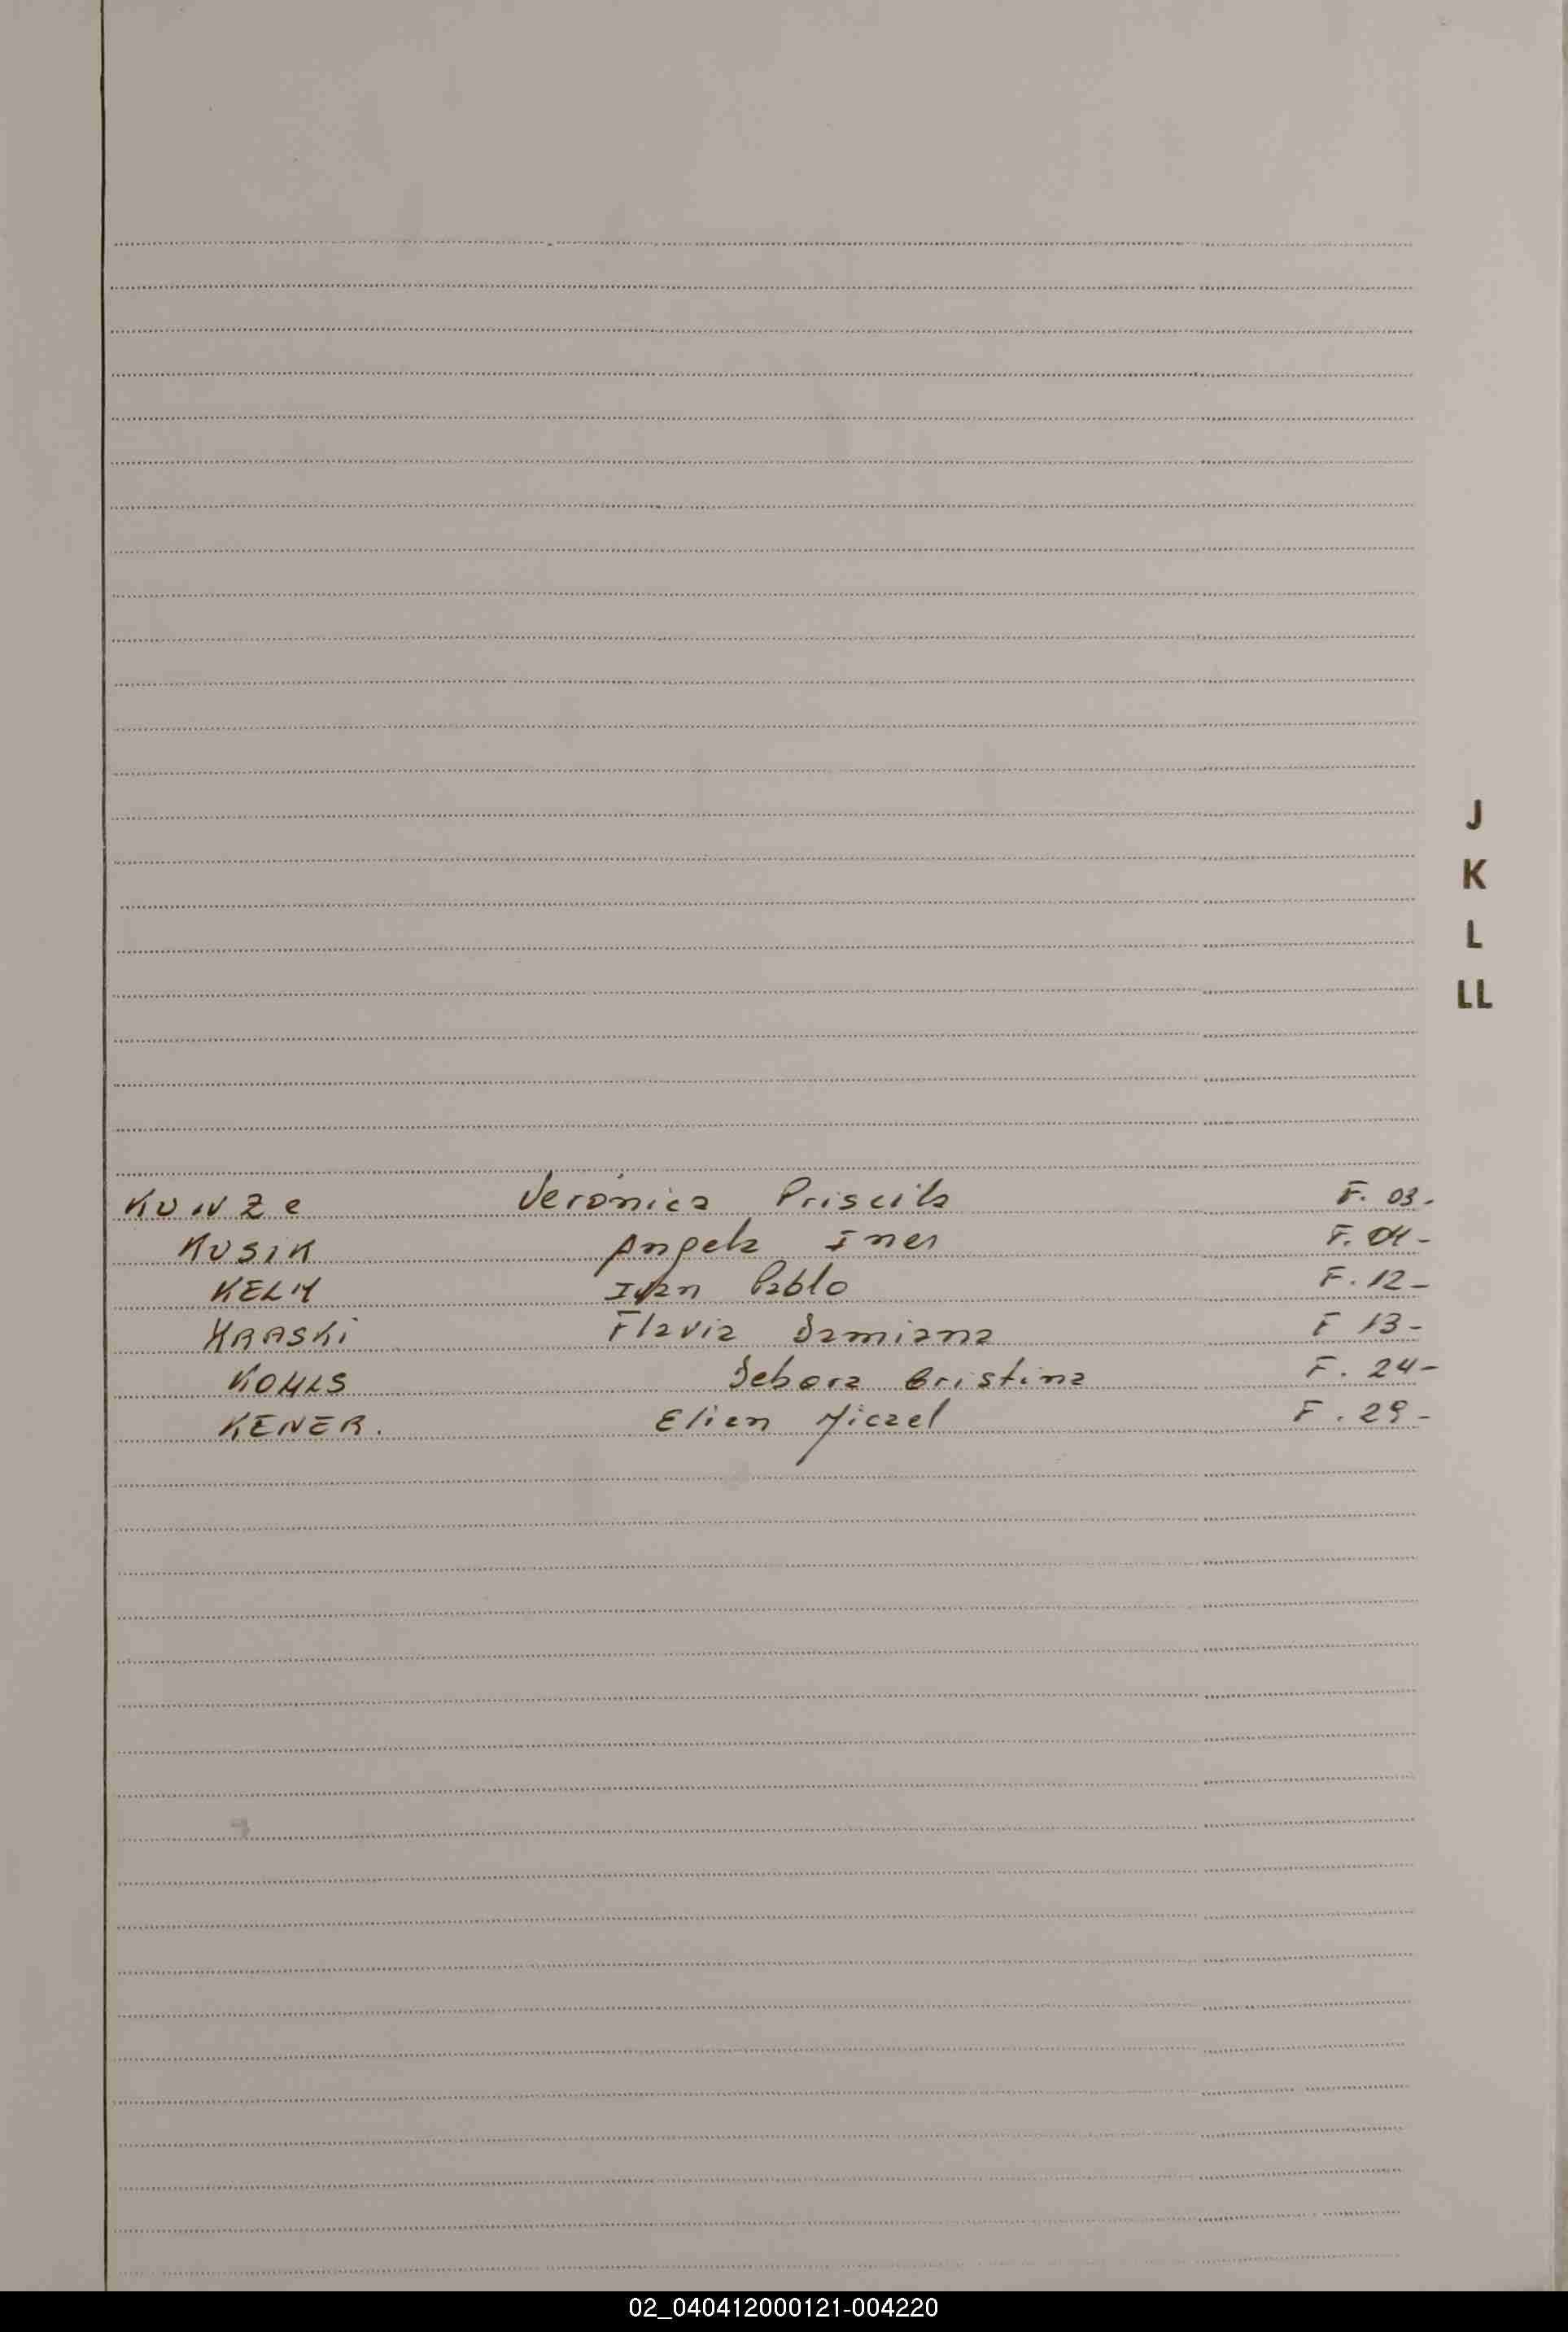 J
K
L
LL
KUNZe Verónica Priscila F. 03-
KUSIK Angela Ines F. 04-
KELM Ivan Pablo F. 12-
KRASKi Flavia Damiana F 13-
KOHLS Debora Cristina F. 24-
KENER. Elien Micael F. 29-
02_040412000121-004220